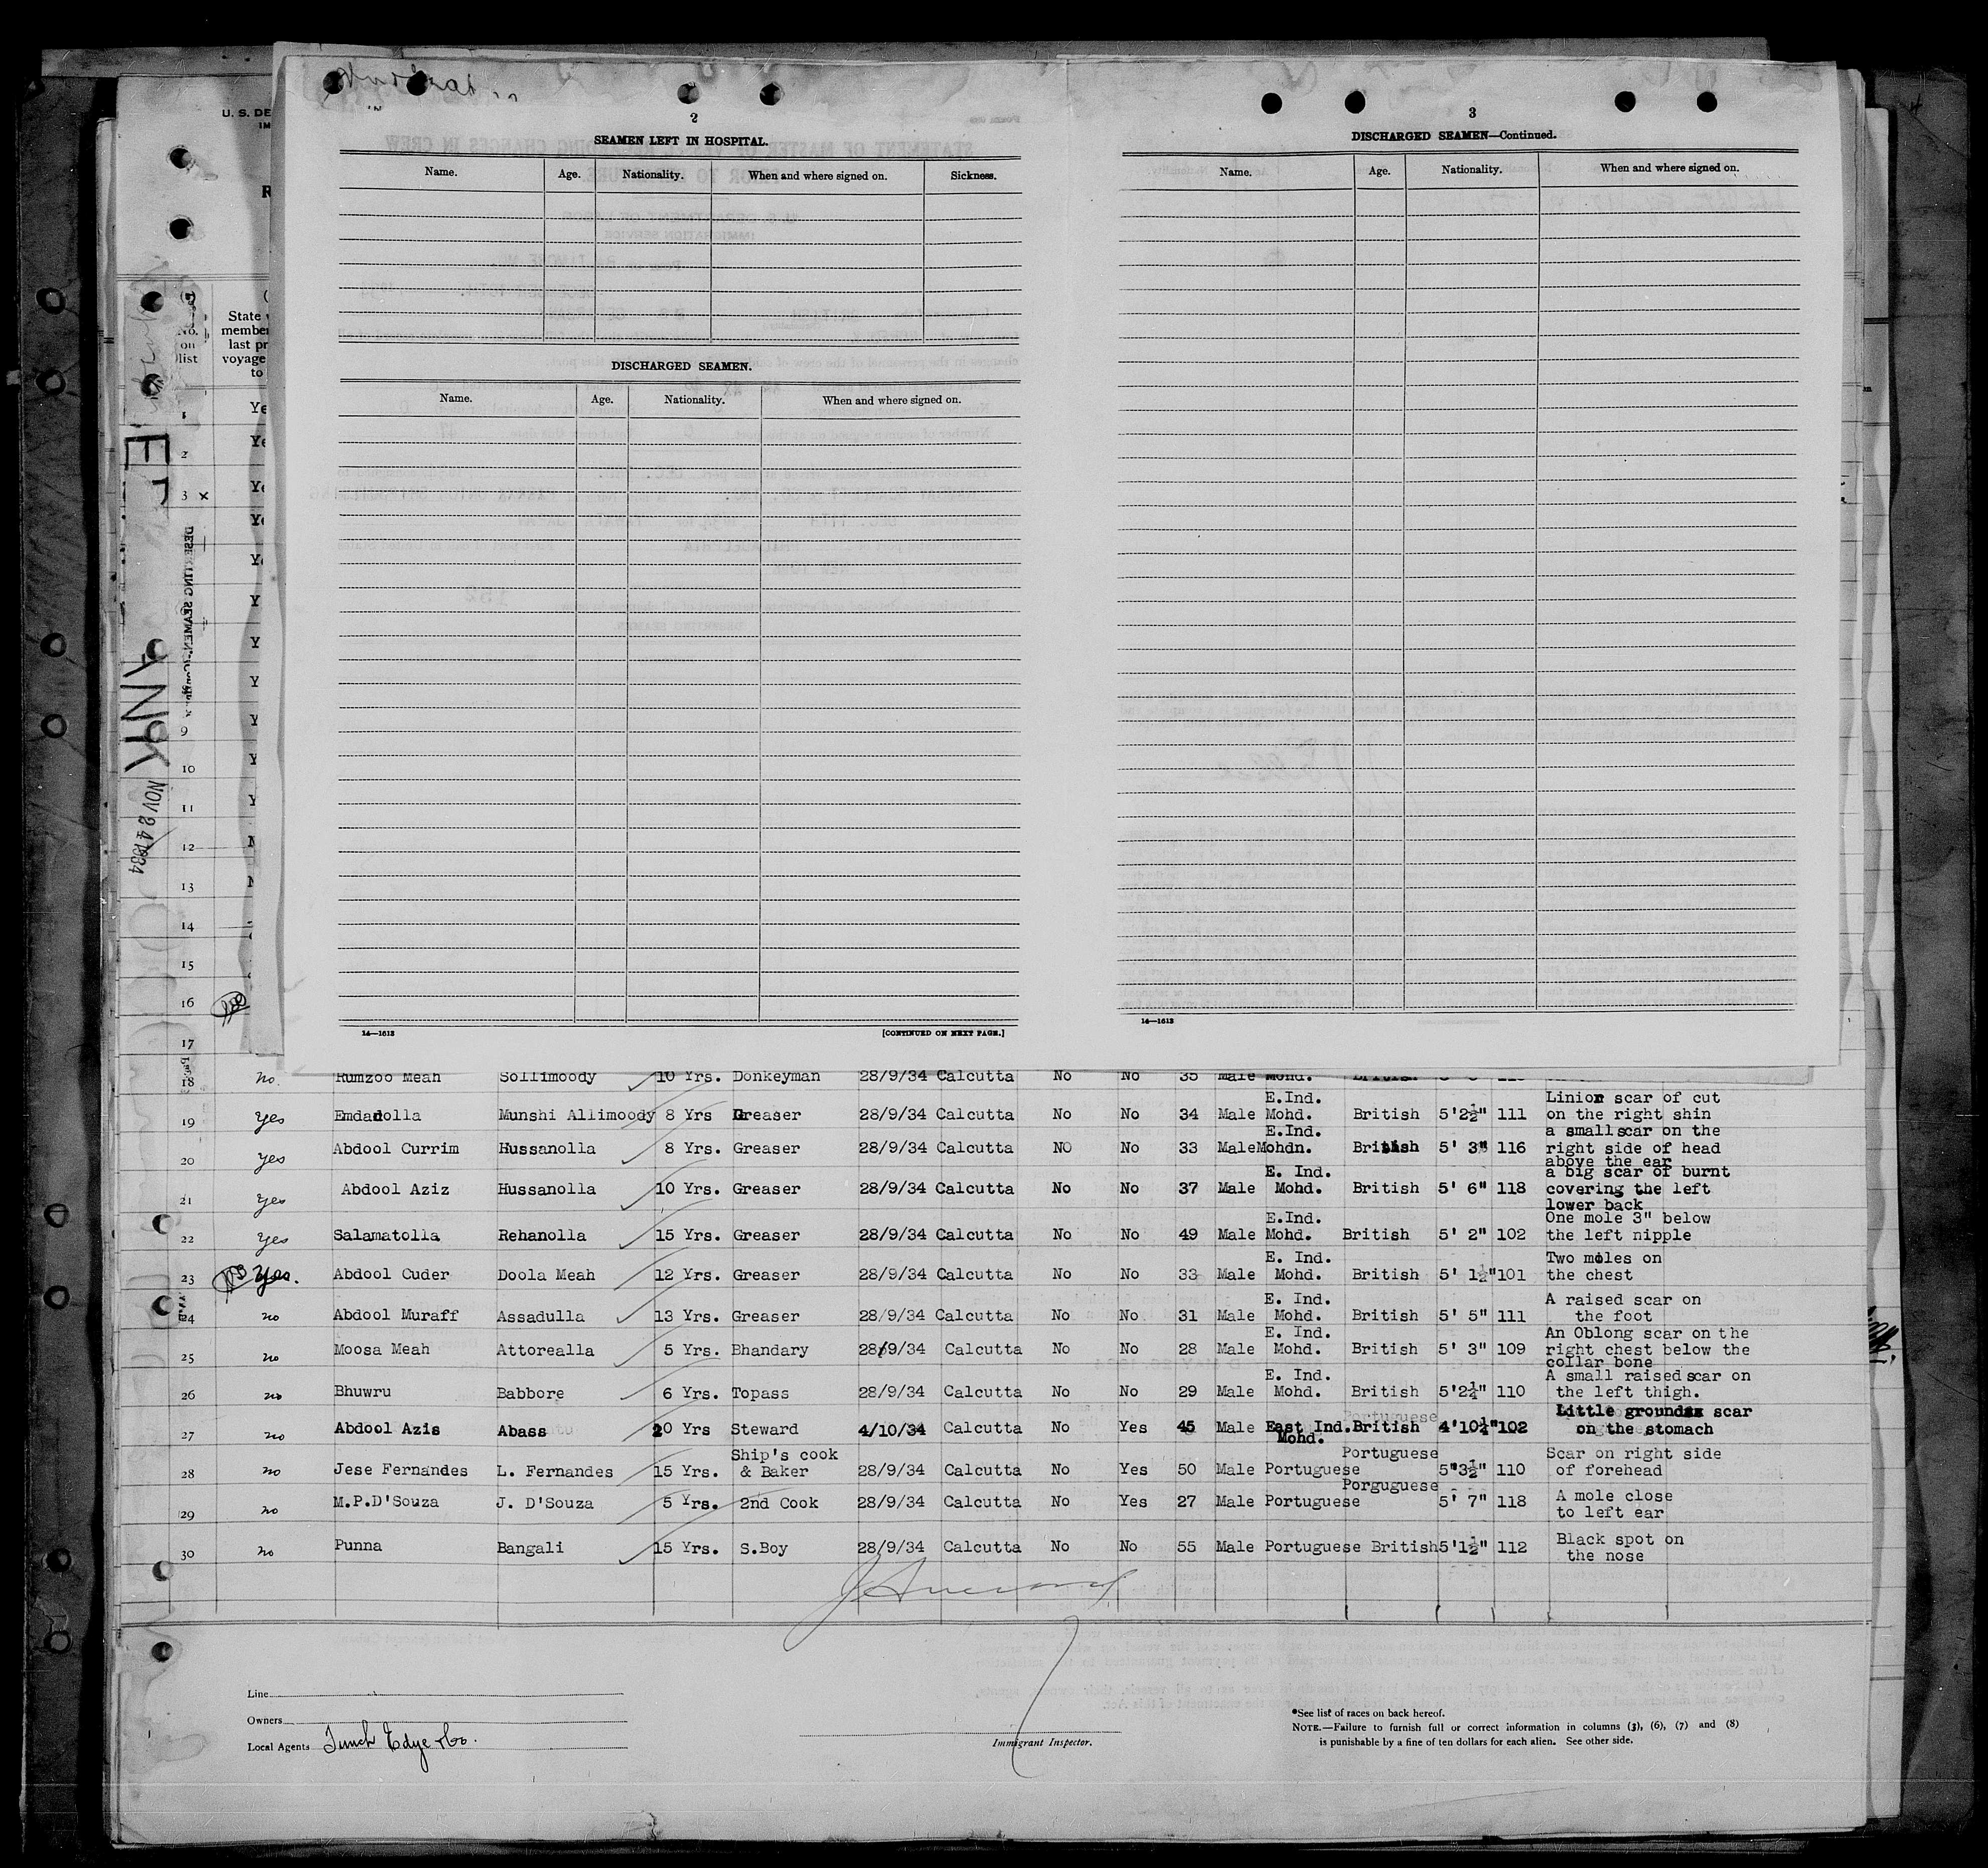 U. S. DE
2
SEAMEN LEFT IN HOSPITAL.
Name. Age. Nationality. When and where signed on. Sickness.
DISCHARGED SEAMEN.
Name. Age. Nationality. When and where signed on.
14—1613 [CONTINUED ON NEXT PAGE.]
3
DISCHARGED SEAMEN—Continued.
Name. Age. Nationality. When and where signed on.
14—1613
No.
on
list
State
membe
last pr
voyage
to
NOV 24 1934
DESERTING SEAMEN
1 Ye
2 Ye
3 x Ye
Ye
Ye
Y
Y
Y
9 Y
10 Y
11 Y
12
13
14
15
16
17
18 no. Rumzoo Meah Sollimoody 10 Yrs. Donkeyman 28/9/34 Calcutta No No 35 Male Mohd. British
19 Yes Emdadolla Munshi Allimoody 8 Yrs Greaser 28/9/34 Calcutta No No 34 Male E.Ind. Mohd. British 5'2½" 111 Linior scar of cut
on the right shin
20 yes Abdool Currim Hussanolla 8 Yrs. Greaser 28/9/34 Calcutta NO No 33 Male E.Ind. Mohdn. British 5' 3" 116 a small scar on the
right side of head
above the ear
21 yes Abdool Aziz Hussanolla 10 Yrs. Greaser 28/9/34 Calcutta No No 37 Male E. Ind. Mohd. British 5' 6" 118 a big scar of burnt
covering the left
lower back
22 yes Salamatolla Rehanolla 15 Yrs. Greaser 28/9/34 Calcutta No No 49 Male E.Ind. Mohd. British 5' 2" 102 One mole 3" below
the left nipple
23 yes. Abdool Cuder Doola Meah 12 Yrs. Greaser 28/9/34 Calcutta No No 33 Male E. Ind. Mohd. British 5' 1½" 101 Two moles on
the chest
24 no Abdool Muraff Assadulla 13 Yrs. Greaser 28/9/34 Calcutta No No 31 Male E. Ind. Mohd. British 5' 5" 111 A raised scar on
the foot
25 no Moosa Meah Attorealla 5 Yrs. Bhandary 28/9/34 Calcutta No No 28 Male E. Ind. Mohd. British 5' 3" 109 An Oblong scar on the
right chest below the
collar bone
26 no Bhuwru Babbore 6 Yrs. Topass 28/9/34 Calcutta No No 29 Male E. Ind. Mohd. British 5'2¼" 110 A small raised scar on
the left thigh.
27 no Abdool Azis Abass 20 Yrs Steward 4/10/34 Calcutta No Yes 45 Male East Ind. Mohd. British 4'10¼" 102 Little ground scar
on the stomach
28 no Jese Fernandes L. Fernandes 15 Yrs. Ship's cook & Baker 28/9/34 Calcutta No Yes 50 Male Portuguese Portuguese 5"3½" 110 Scar on right side
of forehead
29 no M.P.D'Souza J. D'Souza 5 Yrs. 2nd Cook 28/9/34 Calcutta No Yes 27 Male Portuguese Porguguese 5' 7" 118 A mole close
to left ear
30 no Punna Bangali 15 Yrs. S.Boy 28/9/34 Calcutta No No 55 Male Portuguese British 5'1½" 112 Black spot on
the nose
Line
Owners
Local Agents Funch Edye & Co.
Immigrant Inspector.
*See list of races on back hereof.
NOTE.—Failure to furnish full or correct information in columns (3), (6), (7) and (8)
is punishable by a fine of ten dollars for each alien. See other side.